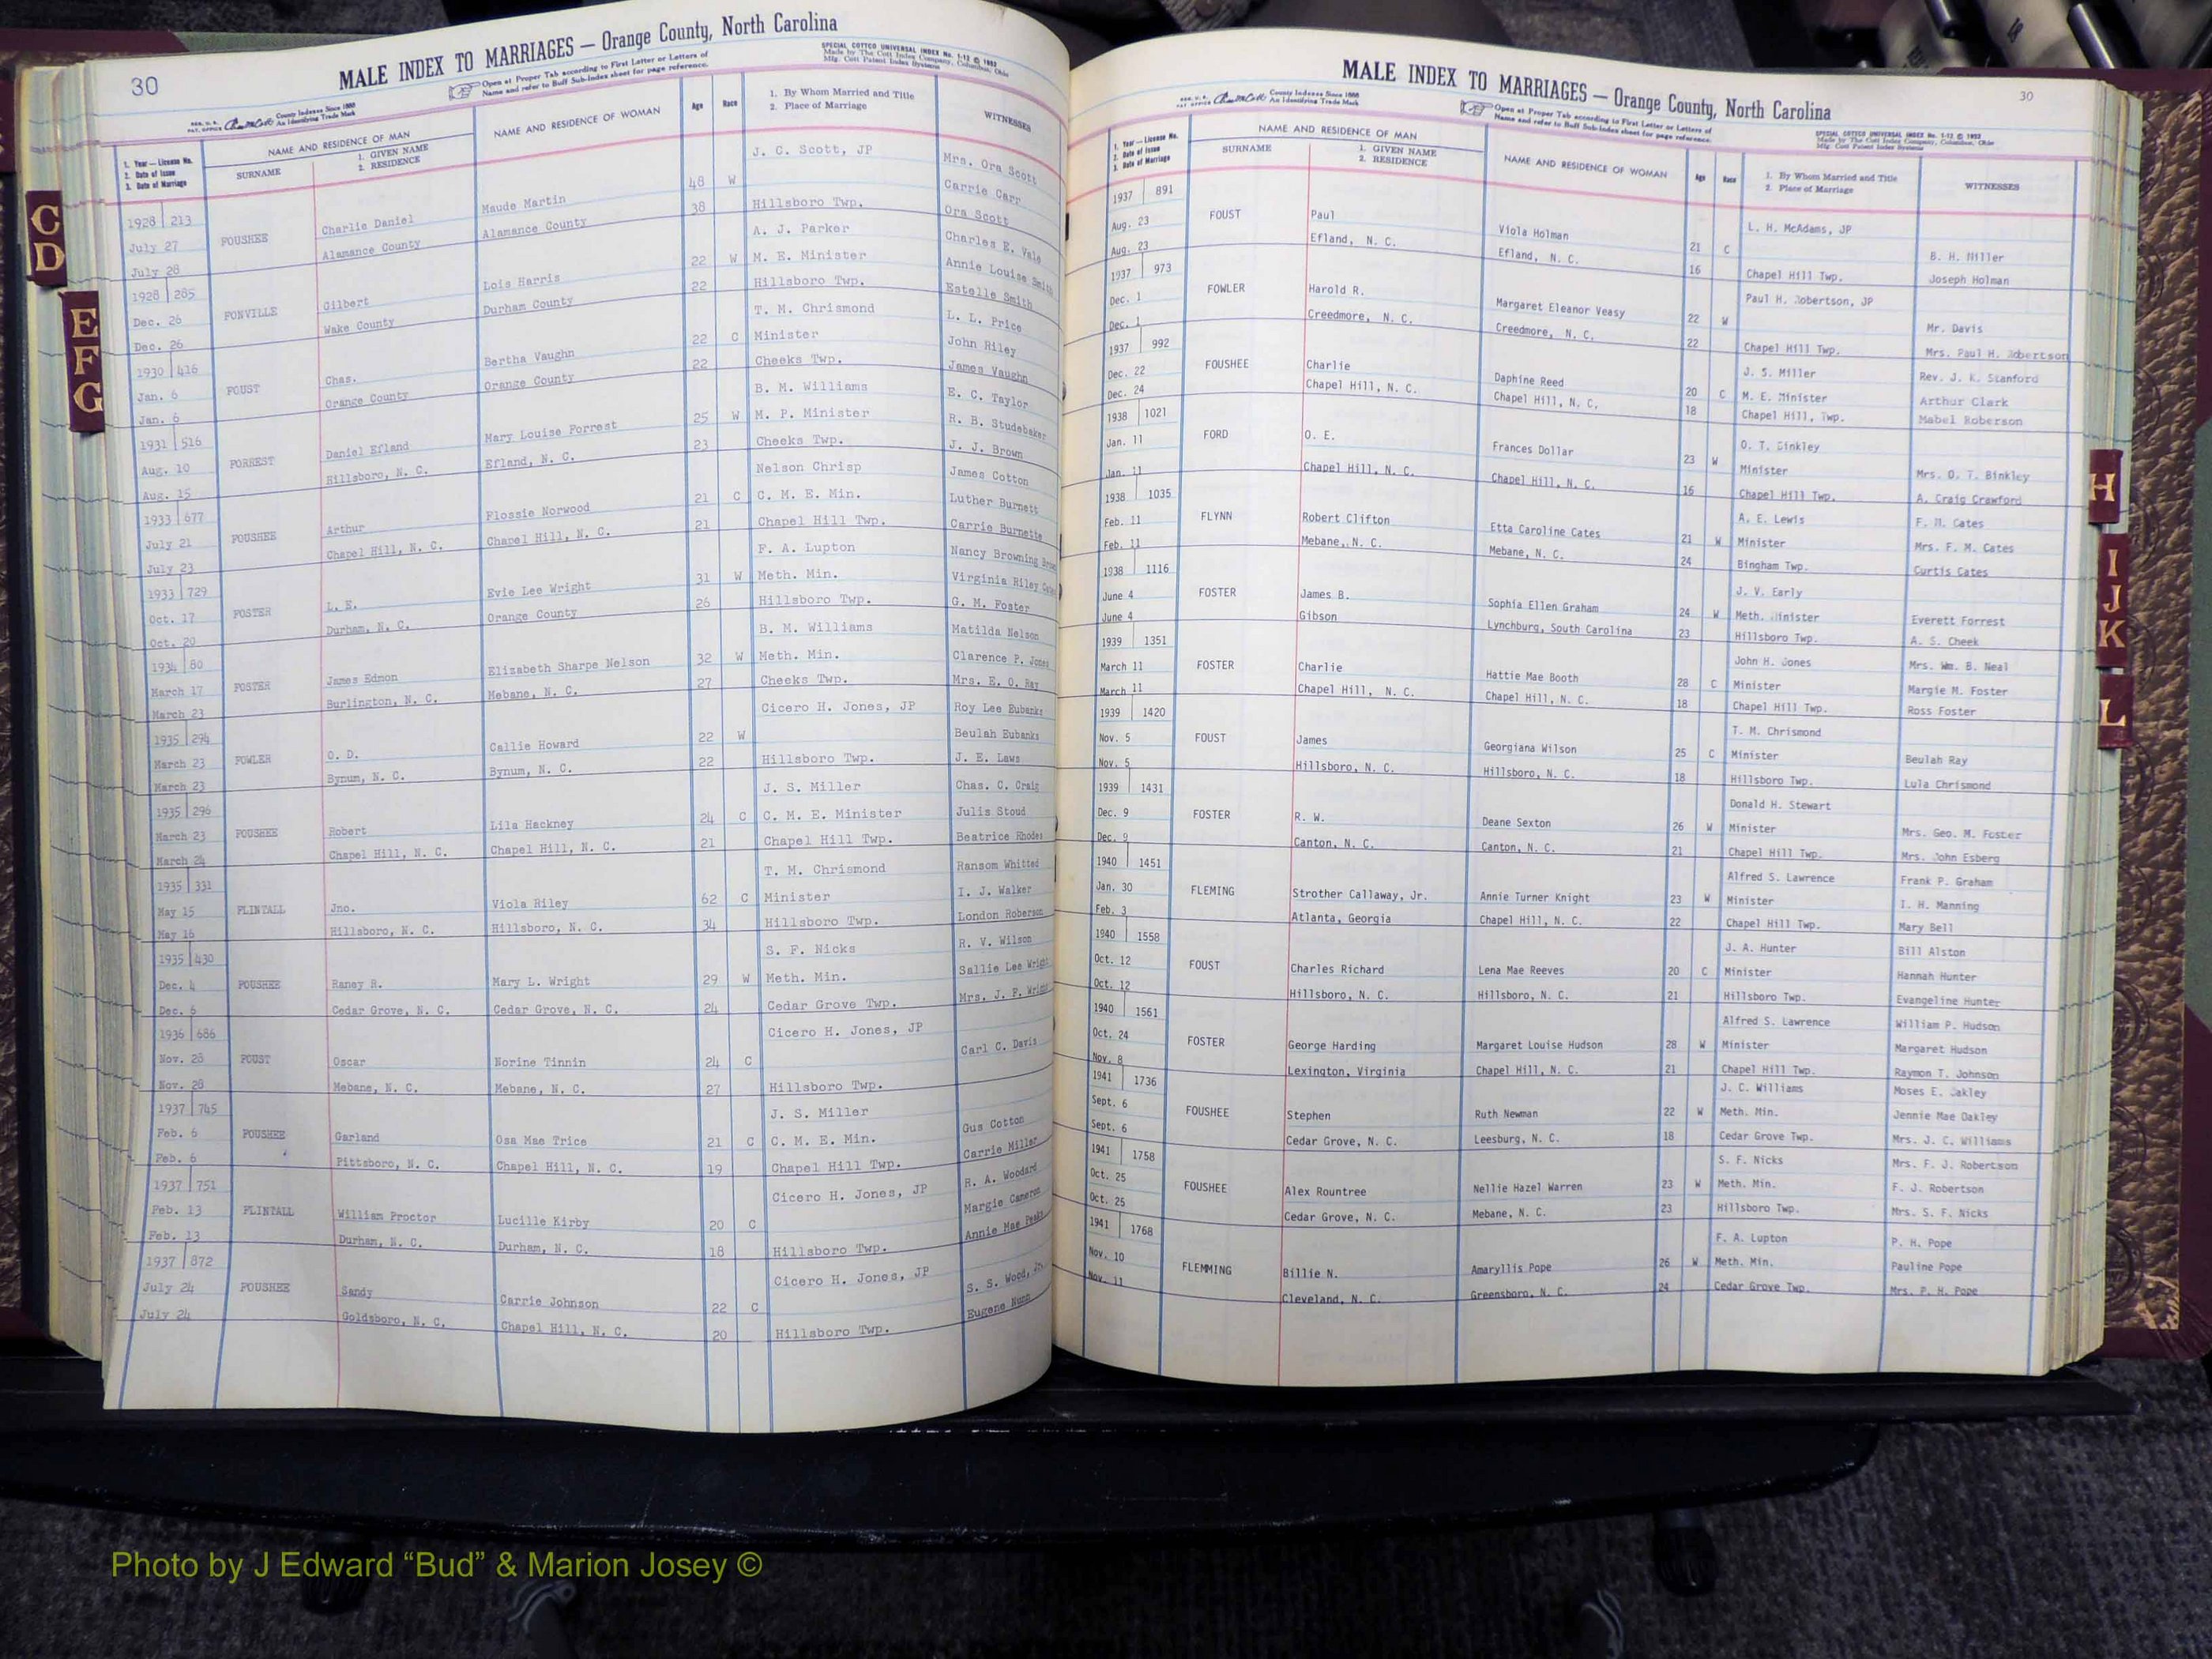 30
MALE INDEX TO MARRIAGES — Orange County, North Carolina
Open at Proper Tab according to First Letter or Letters of
Name and refer to Buff Sub-Index sheet for page reference.
SPECIAL COTTCO UNIVERSAL INDEX No. 1-12 © 1952
Made by The Cott Index Company, Columbus, Ohio
Mfg. Cott Patent Index Systems
County Indexes Since 1888
An Identifying Trade Mark
1. Year — License No.
2. Date of Issue
3. Date of Marriage
NAME AND RESIDENCE OF MAN
SURNAME
1. GIVEN NAME
2. RESIDENCE
NAME AND RESIDENCE OF WOMAN
Age
Race
1. By Whom Married and Title
2. Place of Marriage
WITNESSES
1928 213 J. C. Scott, JP Mrs. Ora Scott
July 27 FOUSHEE Charlie Daniel Maude Martin 48 W Carrie Carr
July 28 Alamance County Alamance County 38 Hillsboro Twp. Ora Scott
1928 285 A. J. Parker Charles E. Vale
Dec. 26 FONVILLE Gilbert Lois Harris 22 W M. E. Minister Annie Louise Smith
Dec. 26 Wake County Durham County 22 Hillsboro Twp. Estelle Smith
1930 416 T. M. Chrismond L. L. Price
Jan. 6 FOUST Chas. Bertha Vaughn 22 C Minister John Riley
Jan. 6 Orange County Orange County 22 Cheeks Twp. James Vaughn
1931 516 B. M. Williams E. C. Taylor
Aug. 10 FORREST Daniel Efland Mary Louise Forrest 25 W M. P. Minister R. B. Studebaker
Aug. 15 Hillsboro, N. C. Efland, N. C. 23 Cheeks Twp. J. J. Brown
1933 677 Nelson Chrisp James Cotton
July 21 FOUSHEE Arthur Flossie Norwood 21 C C. M. E. Min. Luther Burnett
July 23 Chapel Hill, N. C. Chapel Hill, N. C. 21 Chapel Hill Twp. Carrie Burnette
1933 729 F. A. Lupton Nancy Browning
Oct. 17 FOSTER L. E. Evie Lee Wright 31 W Meth. Min. Virginia Riley
Oct. 20 Durham, N. C. Orange County 26 Hillsboro Twp. G. M. Foster
1934 80 B. M. Williams Matilda Nelson
March 17 FOSTER James Edmon Elizabeth Sharpe Nelson 32 W Meth. Min. Clarence P. Jones
March 23 Burlington, N. C. Mebane, N. C. 27 Cheeks Twp. Mrs. E. O. Ray
1935 294 Cicero H. Jones, JP Roy Lee Eubanks
March 23 FOWLER O. D. Callie Howard 22 W Beulah Eubanks
March 23 Bynum, N. C. Bynum, N. C. 22 Hillsboro Twp. J. E. Laws
1935 296 J. S. Miller Chas. C. Craig
March 23 FOUSHEE Robert Lila Hackney 24 C C. M. E. Minister Julis Stoud
March 24 Chapel Hill, N. C. Chapel Hill, N. C. 21 Chapel Hill Twp. Beatrice Rhodes
1935 331 T. M. Chrismond Ransom Whitted
May 15 FLINTALL Jno. Viola Riley 62 C Minister I. J. Walker
May 16 Hillsboro, N. C. Hillsboro, N. C. 34 Hillsboro Twp. London Roberson
1935 430 S. F. Nicks R. V. Wilson
Dec. 4 FOUSHEE Raney R. Mary L. Wright 29 W Meth. Min. Sallie Lee Wright
Dec. 5 Cedar Grove, N. C. Cedar Grove, N. C. 24 Cedar Grove Twp. Mrs. J. F. Wright
1936 686 Cicero H. Jones, JP
Nov. 28 FOUST Oscar Norine Tinnin 24 C Carl C. Davis
Nov. 28 Mebane, N. C. Mebane, N. C. 27 Hillsboro Twp.
1937 745 J. S. Miller
Feb. 6 FOUSHEE Garland Osa Mae Trice 21 C C. M. E. Min. Gus Cotton
Feb. 6 Pittsboro, N. C. Chapel Hill, N. C. 19 Chapel Hill Twp. Carrie Miller
1937 751 Cicero H. Jones, JP R. A. Woodard
Feb. 13 FLINTALL William Proctor Lucille Kirby 20 C Margie Cameron
Feb. 13 Durham, N. C. Durham, N. C. 18 Hillsboro Twp. Annie Mae Peaks
1937 872 Cicero H. Jones, JP
July 24 FOUSHEE Sandy Carrie Johnson 22 C S. S. Wood, Jr.
July 24 Goldsboro, N. C. Chapel Hill, N. C. 20 Hillsboro Twp. Eugene Nunn
30
MALE INDEX TO MARRIAGES — Orange County, North Carolina
Open at Proper Tab according to First Letter or Letters of
Name and refer to Buff Sub-Index sheet for page reference.
SPECIAL COTTCO UNIVERSAL INDEX No. 1-12 © 1952
Made by The Cott Index Company, Columbus, Ohio
Mfg. Cott Patent Index Systems
County Indexes Since 1888
An Identifying Trade Mark
1. Year — License No.
2. Date of Issue
3. Date of Marriage
NAME AND RESIDENCE OF MAN
SURNAME
1. GIVEN NAME
2. RESIDENCE
NAME AND RESIDENCE OF WOMAN
Age
Race
1. By Whom Married and Title
2. Place of Marriage
WITNESSES
1937 891 L. H. McAdams, JP
Aug. 23 FOUST Paul Viola Holman 21 C B. H. Miller
Aug. 23 Efland, N. C. Efland, N. C. 16 Chapel Hill Twp. Joseph Holman
1937 973 Paul H. Robertson, JP
Dec. 1 FOWLER Harold R. Margaret Eleanor Veasy 22 W Mr. Davis
Dec. 1 Creedmore, N. C. Creedmore, N. C. 22 Chapel Hill Twp. Mrs. Paul H. Robertson
1937 992 J. S. Miller Rev. J. K. Stanford
Dec. 22 FOUSHEE Charlie Daphine Reed 20 C M. E. Minister Arthur Clark
Dec. 24 Chapel Hill, N. C. Chapel Hill, N. C. 18 Chapel Hill, Twp. Mabel Roberson
1938 1021 O. T. Binkley
Jan. 11 FORD O. E. Frances Dollar 23 W Minister Mrs. O. T. Binkley
Jan. 11 Chapel Hill, N. C. Chapel Hill, N. C. 16 Chapel Hill Twp. A. Craig Crawford
1938 1035 A. E. Lewis F. M. Cates
Feb. 11 FLYNN Robert Clifton Etta Caroline Cates 21 W Minister Mrs. F. M. Cates
Feb. 11 Mebane, N. C. Mebane, N. C. 24 Bingham Twp. Curtis Cates
1938 1116 J. V. Early
June 4 FOSTER James B. Sophia Ellen Graham 24 W Meth. Minister Everett Forrest
June 4 Gibson Lynchburg, South Carolina 23 Hillsboro Twp. A. S. Cheek
1939 1351 John H. Jones Mrs. Wm. B. Neal
March 11 FOSTER Charlie Hattie Mae Booth 28 C Minister Margie M. Foster
March 11 Chapel Hill, N. C. Chapel Hill, N. C. 18 Chapel Hill Twp. Ross Foster
1939 1420 T. M. Chrismond
Nov. 5 FOUST James Georgiana Wilson 25 C Minister Beulah Ray
Nov. 5 Hillsboro, N. C. Hillsboro, N. C. 18 Hillsboro Twp. Lula Chrismond
1939 1431 Donald H. Stewart
Dec. 9 FOSTER R. W. Deane Sexton 26 W Minister Mrs. Geo. M. Foster
Dec. 9 Canton, N. C. Canton, N. C. 21 Chapel Hill Twp. Mrs. John Esberg
1940 1451 Alfred S. Lawrence Frank P. Graham
Jan. 30 FLEMING Strother Callaway, Jr. Annie Turner Knight 23 W Minister I. H. Manning
Feb. 3 Atlanta, Georgia Chapel Hill, N. C. 22 Chapel Hill Twp. Mary Bell
1940 1558 J. A. Hunter Bill Alston
Oct. 12 FOUST Charles Richard Lena Mae Reeves 20 C Minister Hannah Hunter
Oct. 12 Hillsboro, N. C. Hillsboro, N. C. 21 Hillsboro Twp. Evangeline Hunter
1940 1561 Alfred S. Lawrence William P. Hudson
Oct. 24 FOSTER George Harding Margaret Louise Hudson 28 W Minister Margaret Hudson
Nov. 8 Lexington, Virginia Chapel Hill, N. C. 21 Chapel Hill Twp. Raymon T. Johnson
1941 1736 J. C. Williams Moses E. Oakley
Sept. 6 FOUSHEE Stephen Ruth Newman 22 W Meth. Min. Jennie Mae Oakley
Sept. 6 Cedar Grove, N. C. Leesburg, N. C. 18 Cedar Grove Twp. Mrs. J. C. Williams
1941 1758 S. F. Nicks Mrs. F. J. Robertson
Oct. 25 FOUSHEE Alex Rountree Nellie Hazel Warren 23 W Meth. Min. F. J. Robertson
Oct. 25 Cedar Grove, N. C. Mebane, N. C. 23 Hillsboro Twp. Mrs. S. F. Nicks
1941 1768 F. A. Lupton P. H. Pope
Nov. 10 FLEMMING Billie N. Amaryllis Pope 26 W Meth. Min. Pauline Pope
Nov. 11 Cleveland, N. C. Greensboro, N. C. 24 Cedar Grove Twp. Mrs. P. H. Pope
C
D
E
F
G
H
I
J
K
L
Photo by J Edward “Bud” & Marion Josey ©